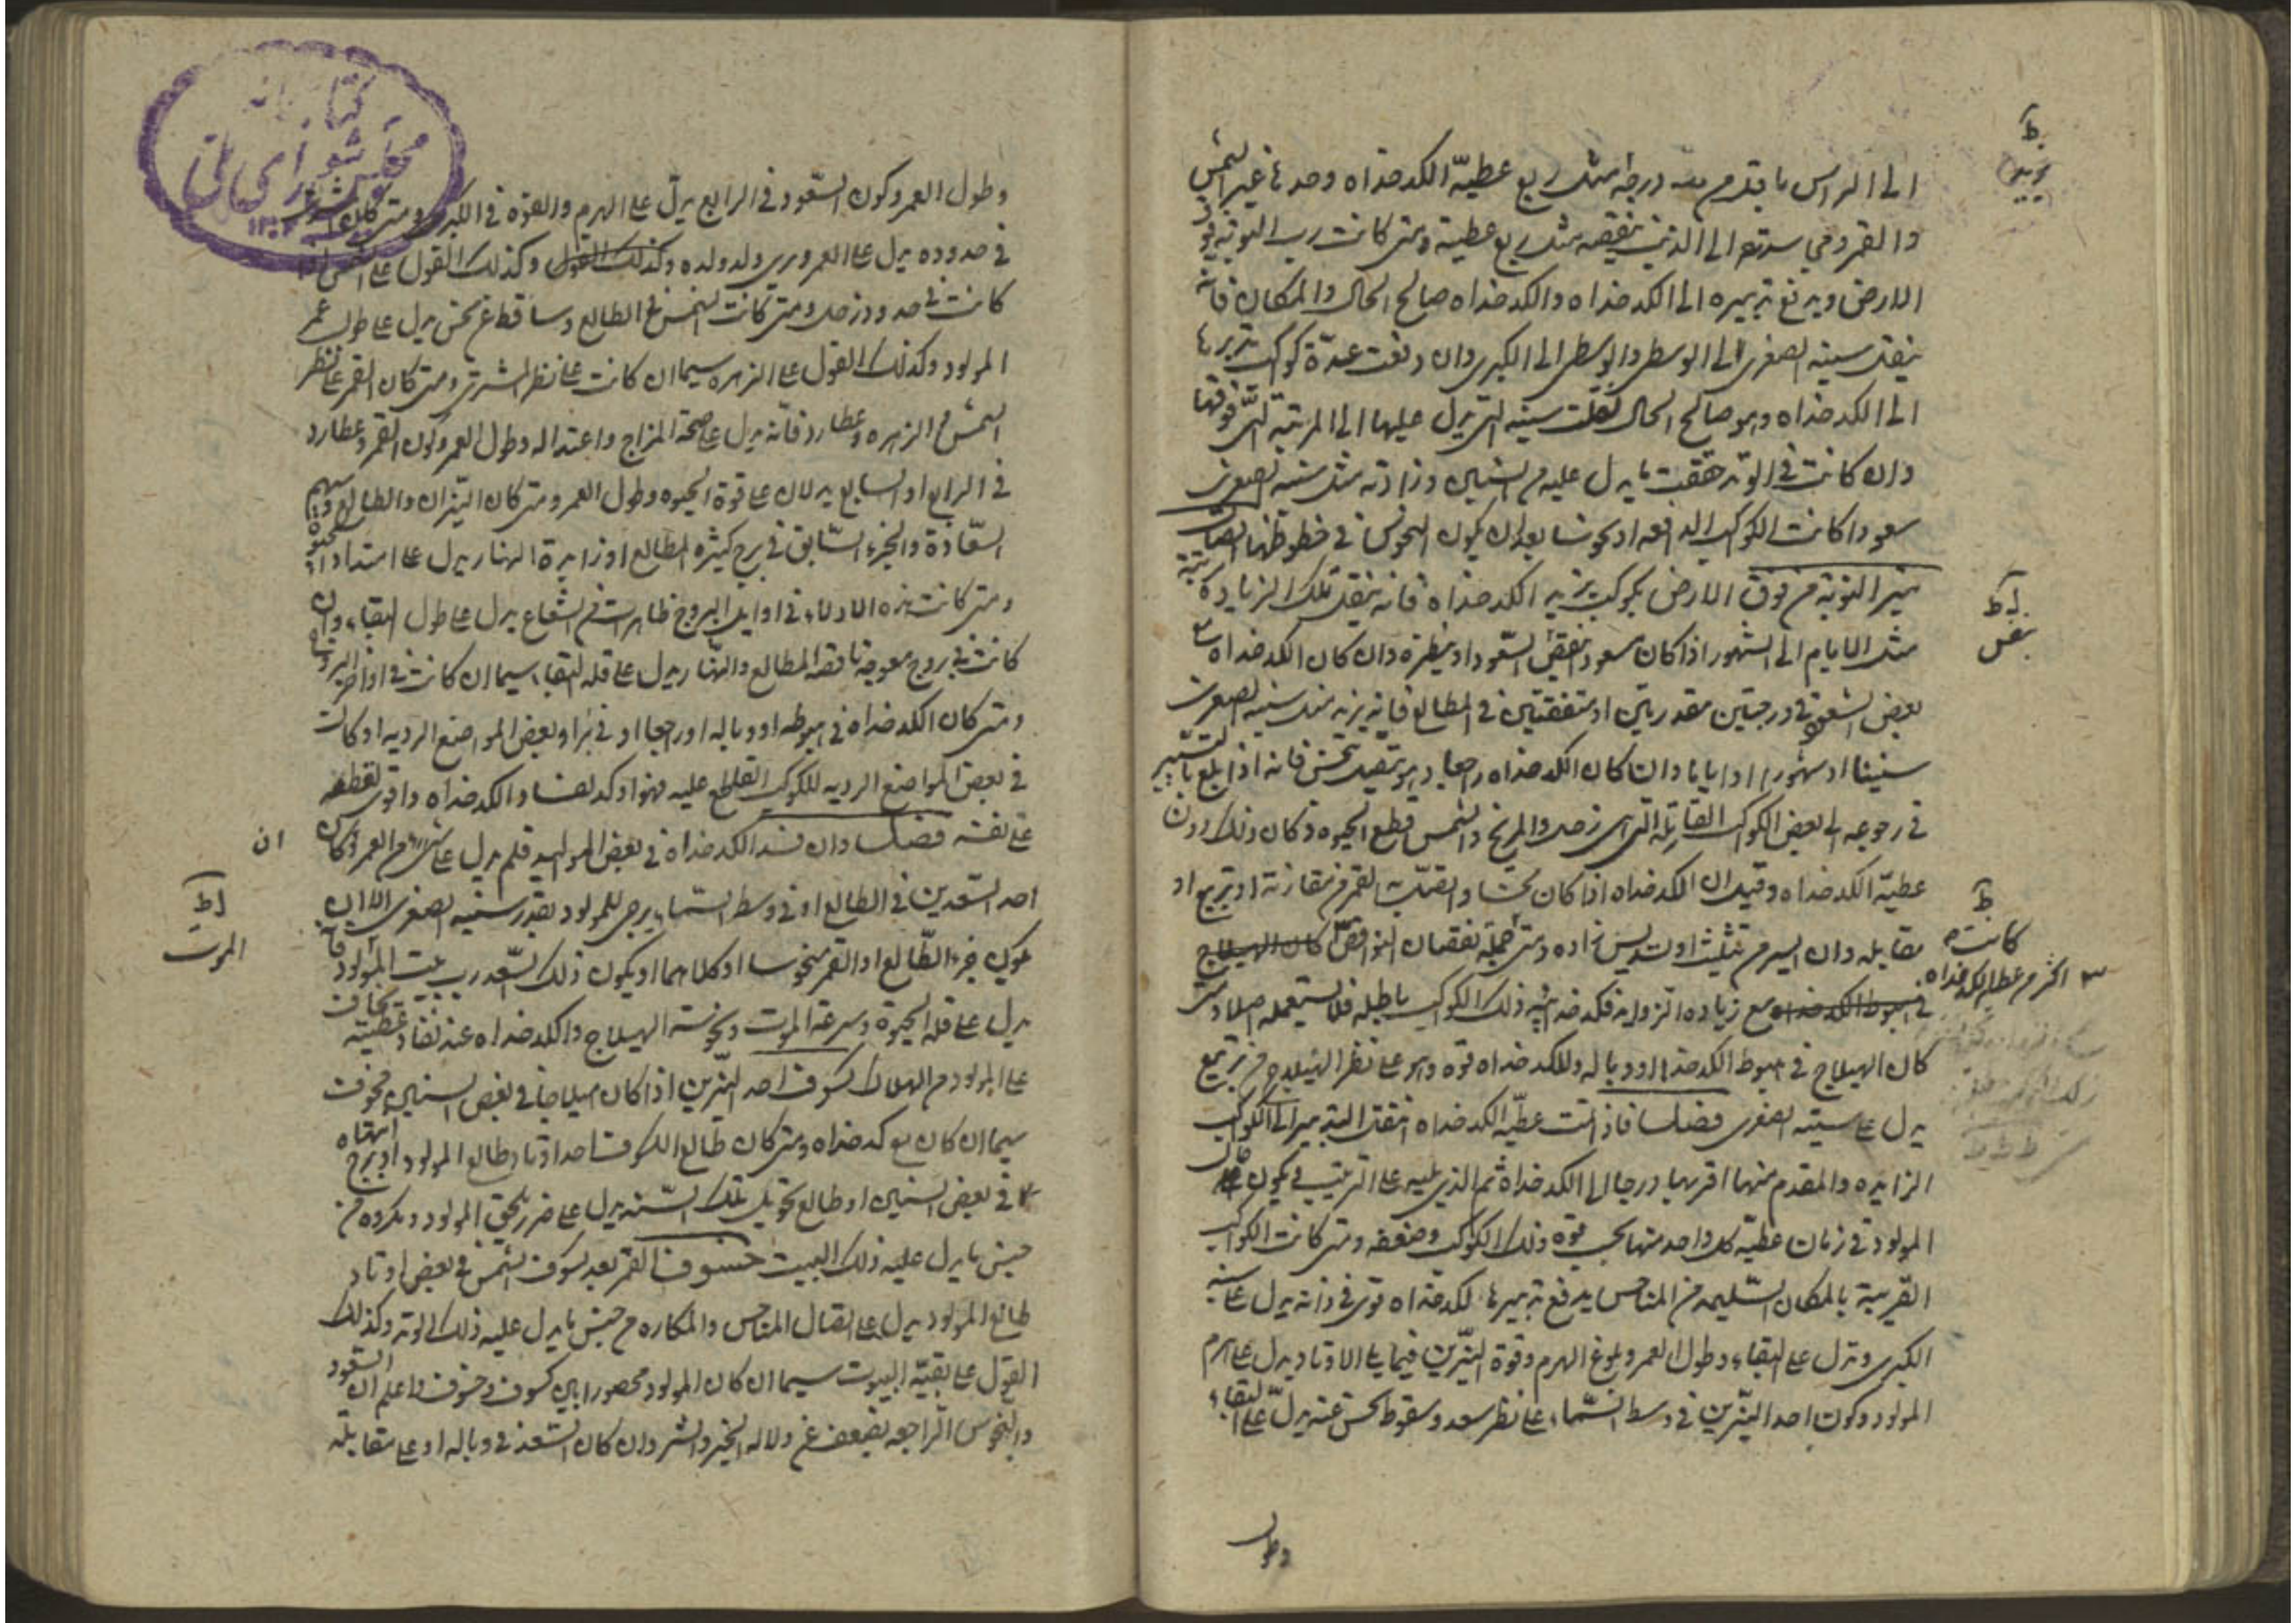 الى الراس ما يقدم درجه مثل ربع عطيّة الكدخداه وحدها غير الشمس
والقمر وهي الى الذنب ينقصه مثل ربع عطيته ومتى كانت رب النوبه فوق
الارض ويدفع تدبيره الى الكدخداه والكدخداه صالح الحال والمكان فانه
ينقل سنيه الصغرى الى الوسطى والوسطى الى الكبرى وان دفعت عدّة كوكب تدبيرها
الى الكدخداه وهو صالح الحال نقلت سنيه التى يدل عليها الى المرتبة التى فوقها
وان كانت فى الوتد حققت ما يدل عليه من السنين وزادته مثل سنيه الصغرى
سعودا كانت الكواكب الدافعه او نحوسا بعد ان يكون النحوس فى حظوظها
نير النوبة من فوق الارض بكوكب يزيد الكدخداه فانه ينقل تلك الزيادة
مثل الايام الى الشهور اذا كان سعود السّعود او ينظره وان كان الكدخداه
بعض السعود فى درجتين مقدرتين او متفقتين فى المطالع فانه يزيد مثل سنيه الصغرى
سنينا او شهورا او اياما وان كان الكدخداه راجعا وهو متصل بنحس فانه اذا بلغ بالتسيير
فى رجوعه الى بعض الكواكب القاتله التى هى زحل والمريخ والشمس قطع الحيوة وكان ذلك دون
عطيّة الكدخداه وقيل ان الكدخداه اذا كان نحسا واتصلت به القمر من مقارنة او تربيع او
مقابله وان اليسير من تثليث او تسديس زاده ومتى جملة نقصان النواقص كان الهيلاج
فى هبوط الكدخداه مع زياده الزوايد ذلك الكوكب باطله فلا يستعمله اصلا ومتى
كان الهيلاج فى هبوط الكدخداه او وباله وللكدخداه قوة وهو على نظر الهيلاج من تربيع
يدل على سنيه الصغرى فصل فاذا تمت عطيّة الكدخداه انتقل التدبير الى الكواكب
الزايده والمقدم منها اقربها درجا الى الكدخداه ثم الذى يليه على الترتيب فيكون حال
المولود فى زمان عطيّة كل واحد منها بحسب قوة ذلك الكوكب وضعفه ومتى كانت الكواكب
القريبة بالمكان السّليمه من المناحس يدفع تدبيرها لكدخداه قوى فى ذاته يدل على سنيه
الكبرى وتدل على البقاء وطول العمر وبلوغ الهرم وقوة النيّرين فيما يلى الاوتاد يدل على هرم
المولود وكون احد النيّرين فى وسط السّماء على نظر سعد وسقوط نحس عنه يدلّ على البقاء
وطول
كانت
اكثر من عطا الكدخداه
وطول العمر وكون السّعود فى الرابع يدلّ على الهرم والقوّة فى الكبر ومتى كان المشترى
فى حدوده يدل على العمر ويرى ولد ولده وكذلك القول وكذلك القول على الشمس اذا
كانت فى حدود زحل ومتى كانت الشمس فى الطالع وساقط عن نحس يدل على طول عمر
المولود وكذلك القول على الزهره سيما ان كانت على نظر المشترى ومتى كان القمر على نظر
الشمس من الزهره وعطارد فانّه يدل على صحّة المزاج واعتداله وطول العمر وكون القمر وعطارد
فى الرابع او السابع يدلان على قوة الحيوه وطول العمر ومتى كان النيّران والطالع وسهم
السّعادة والجزء السّابق فى برج كثيره المطالع او زايدة النهار يدل على امتداد الحيوه
ومتى كانت هذه الادلاء فى اوايل البروج ظاهرات من الشعاع يدل على طول البقاء وان
كانت فى بروج معوجة ناقصه المطالع والنّهار يدل على قله البقاء سيما ان كانت فى اواخر البروج
ومتى كان الكدخداه فى هبوطه او وباله او راجعا او فى بئر او بعض المواضع الرديه او كانت
فى بعض المواضع الرديه للكوكب القاطع عليه فهو اوكد لفساد الكدخداه واقوى لقطعه
على نفسه فصل وان فسد الكدخداه فى بعض المواليد فلم يدل على شىء من العمر وكان ان
احد السّعدين فى الطالع او فى وسط السّماء يرجى للمولود بقدر سنيه الصغرى الا ان
يكون جزء الطّالع او القمر منحوسا او كلاهما او يكون ذلك السّعد رب بيت الموت فانه
يدل على قله الحيوة وسرعة الموت ونحوسة الهيلاج والكدخداه عند نفاد عطيته يخاف
على المولود من الهلاك كسوف احد النيّرين اذا كان هيلاجا فى بعض السنين مخوف
سيما ان كان مع كدخداه ومتى كان طالع الكسوف احد اوتاد طالع المولود او برج انتهاه
فى بعض السنين او طالع تحويل تلك السّنة يدل على ضرر يلحق المولود ومكروه من
جنس ما يدل عليه ذلك البيت خسوف القمر بعد كسوف الشمس فى بعض اوتاد
طالع المولود يدل على اتصال المناحس والمكاره من جنس ما يدل عليه ذلك الوتد وكذلك
القول على بقيّة البيوت سيما ان كان المولود محصورا بين كسوف وخسوف واعلم ان السّعود
والنحوس الراجعه يضعف عن دلاله الخير والشر وان كان السّعد فى وباله او على مقابلة
الموت
كتابخانه
مجلس شوراى ملى